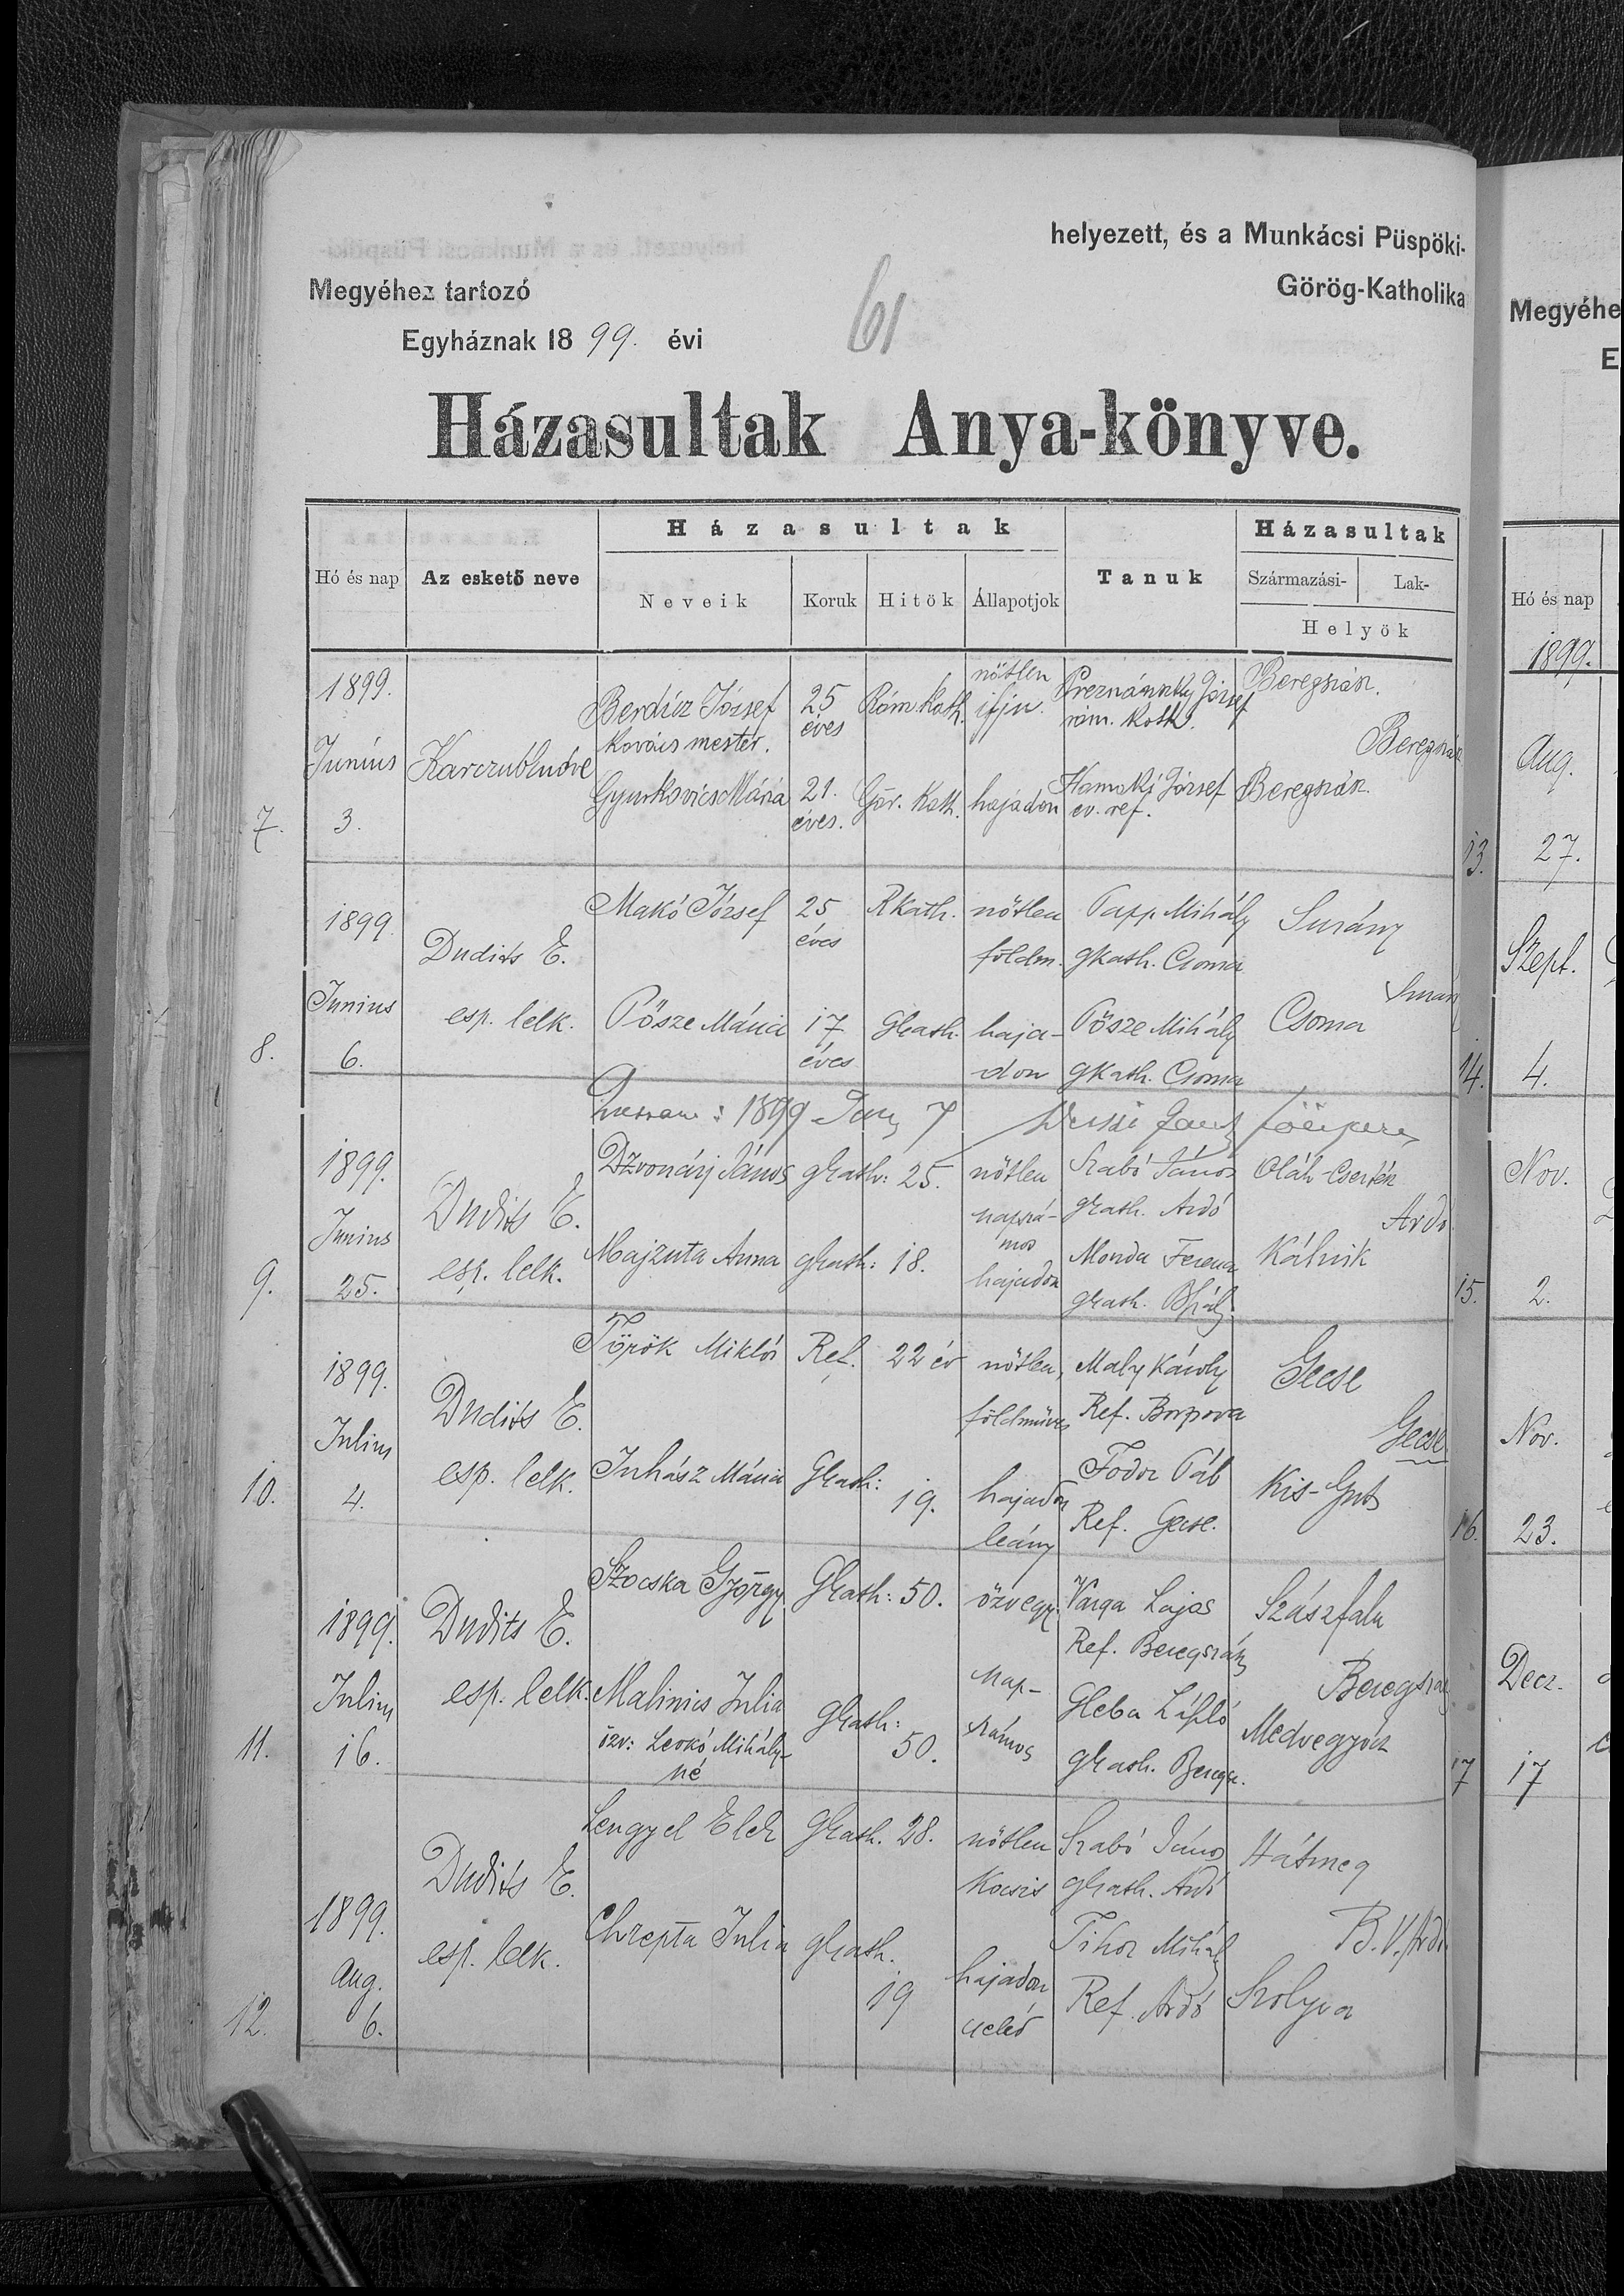 helyezett, és a Munkácsi Püspöki-
Megyéhez tartozó
Görög-Katholika
Egyháznak 1899. évi
61
Házasultak Anya-könyve.
Hó és nap
Az eskető neve
Házasultak
Neveik
Koruk
Hitök
Állapotjok
Tanuk
Házasultak
Származási-
Lak-
Helyök
7.
1899.
Junius
3.
Berdúz József
kovács mester.
25
éves
Róm. Kath.
nőtlen
ifju.
József
róm. kath.
Beregszász.
Gyurkovics Mária
21.
éves.
Gör. Kath.
hajadon
Hamaki József
ev. ref.
Beregszász.
8.
1899.
Junius
6.
Dudits E.
esp. lelk.
Makó József
25
éves
Rkath.
nőtlen
földm.
Papp Mihály
gkath. Csoma
Surány
Pősze Mária
17
éves
Gkath.
haja-
don
Pősze Mihály
gkath. Csoma
Csoma
1899 Jun 7
9.
1899.
Junius
25.
Dudits E.
esp. lelk.
Dzvonárj János
gkath: 25.
nőtlen
napszá-
mos
Szabó János
gkath. Ardó
Oláh-Csertész
Ardó
Majzuta Anna
gkath: 18.
hajadon
Monda Ferencz
gkath.
Kálnik
10.
1899.
Julius
4.
Dudits E.
esp. lelk.
Török Miklós
Ref. 22 év
nőtlen,
földműves
Maly Károly
Ref.
Gecse
Gecse
Juhász Mária
Gkath:
19.
hajadon
leány
Fodor Pál
Ref. Gecse.
Kis-Gut
11.
1899.
Julius
16.
Dudits E.
esp. lelk.
Szocska György
Gkath: 50.
özvegy.
Varga Lajos
Ref. Beregszász
Szászfalu
Beregszász
Malinics Julia
özv: Levkó Mihály-
né
Gkath:
50.
nap-
számos
Gleba László
gkath.
Medvegyócz
12.
1899.
Aug.
6.
Dudits E.
esp. lelk.
Lengyel Elek
Gkath. 28.
nőtlen
kocsis
Szabó János
Gkath. Ardó
Hátmeg
B.V. Ardó
Chrepta Julia
gkath.
19
hajadon
cseléd
Tihor Mihály
Ref. Ardó
Szolyva
Megyéhe
E
Hó és nap
1899.
13.
Aug.
27.
14.
Szept.
4.
15.
Nov.
2.
16.
Nov.
23.
17
Decz.
17